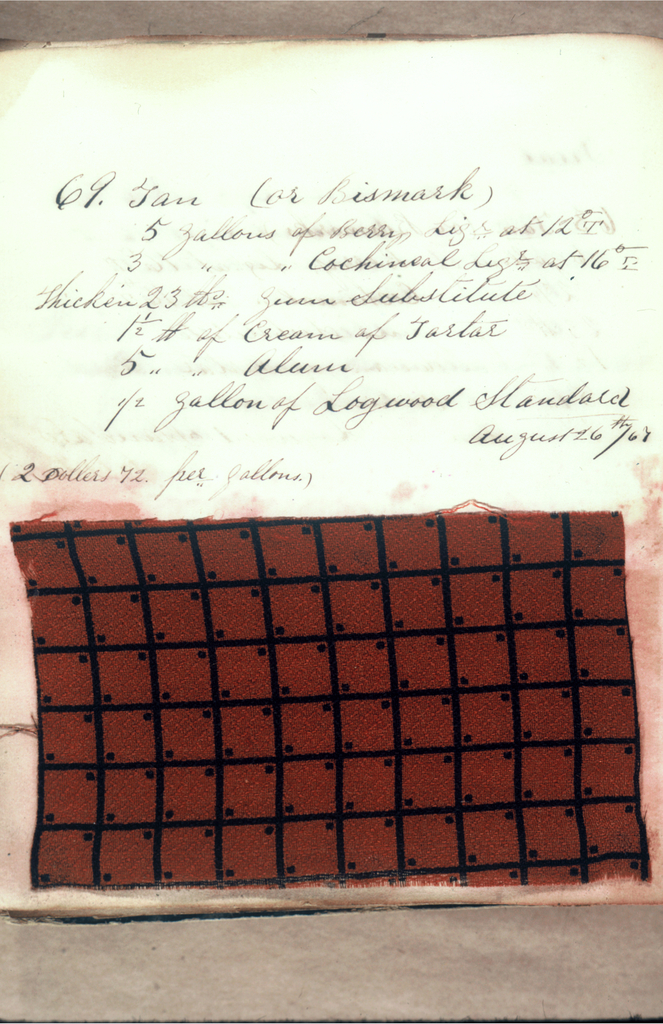 69. Tan (or Bismark)
5 gallons of Berry Liqr at 12° T
3 " " Cochineal Liqr at 16° T
thicken 23 lbs gum Substitute
1½ lb of Cream of Tartar
5 " " Alum
1/2 gallon of Logwood Standard
August 26th/67
(2 Dollers 72. per gallons.)